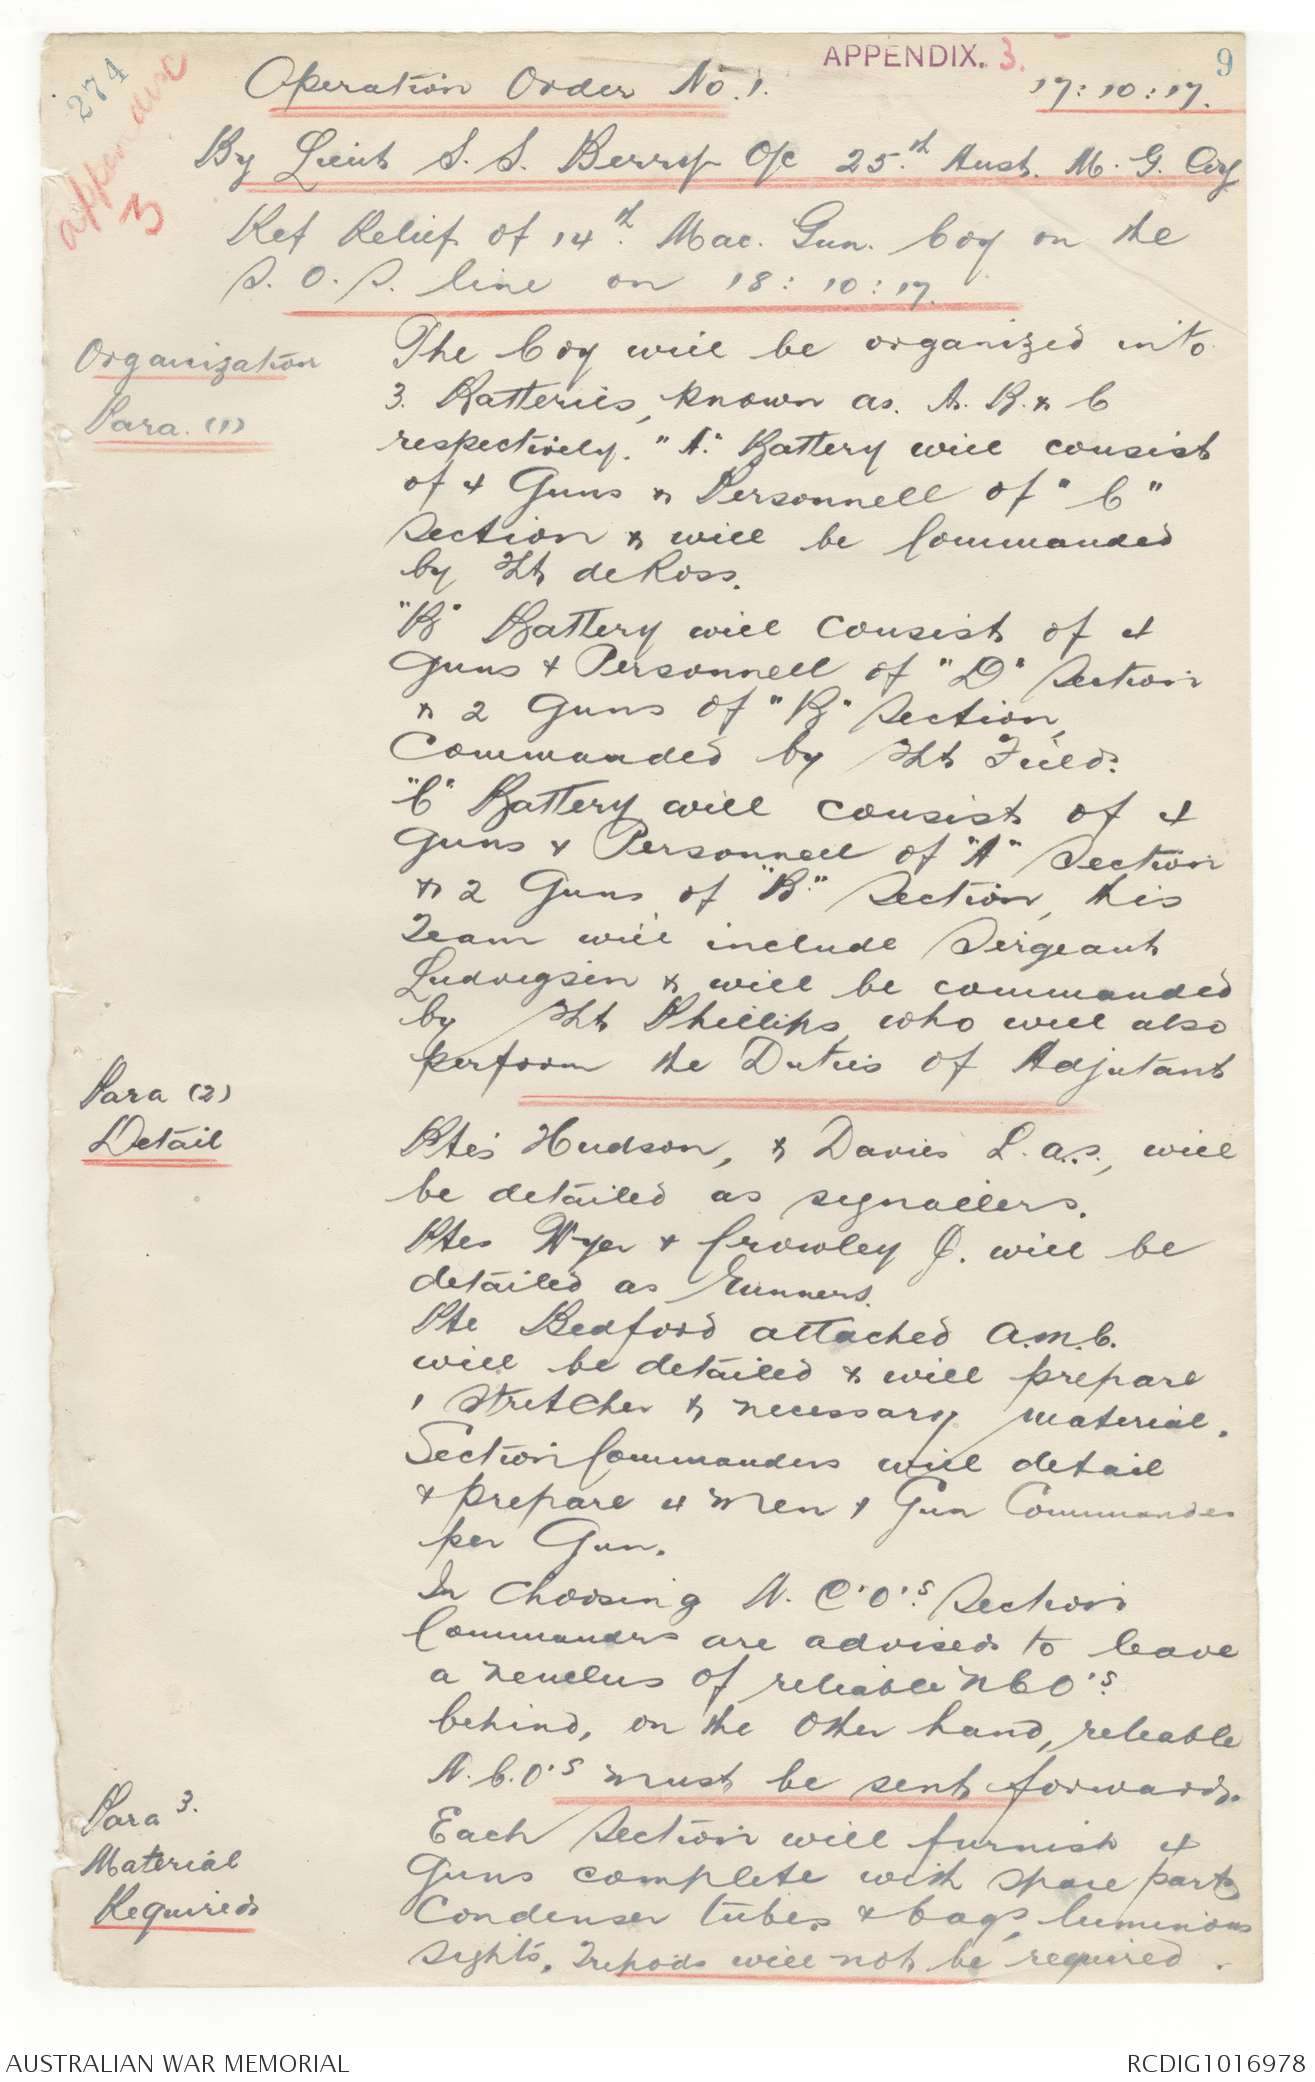 274
appendix
3
APPENDIX. 3.
9
Operation Order No. 1.
17:10:17.
By Lieut S. S. Berry O/c 25th. Aust. M. G. Coy
Ref Relief of 14th. Mac. Gun. Coy on the
S. O. S. line on 18:10:17.
Organization
Para. (1)
The Coy will be organized into
3. Batteries, known as. A. B. & C
respectively. "A." Battery will consist
of 4 Guns & Personnell of "C"
Section & will be Commanded
by Lt deRoss.
"B" Battery will consist of 4
Guns & Personnell of "D" Section
& 2 Guns of "B" Section,
Commanded by Lt Field.
"C" Battery will consist of 4
Guns & Personnell of "A" Section
& 2 Guns of "B." Section, this
Team will include Sergeant
Ludvigsen & will be commanded
by Lt Phillips who will also
perform the Duties of Adjutant
Para (2)
Detail
Ptes Hudson, & Davies L. a.s., will
be detailed as signallers.
Ptes Wyer & Crowley J. will be
detailed as Runners.
Pte Bedford attached A.M.C.
will be detailed & will prepare
1 Stretcher & necessary material.
Section Commanders will detail
& prepare 4 men & Gun Commander
per Gun.
In choosing N. C'O'.s Section
Commanders are advised to leave
a neuclus of reliable N C O's.
behind, on the other hand, reliable
N. C. O's must be sent forward.
Para 3.
Material
Required
Each Section will furnish 4
Guns complete with spare parts
Condenser tubes & bags, luminous
sights. Tripods will not be required.
AUSTRALIAN WAR MEMORIAL
RCDIG1016978